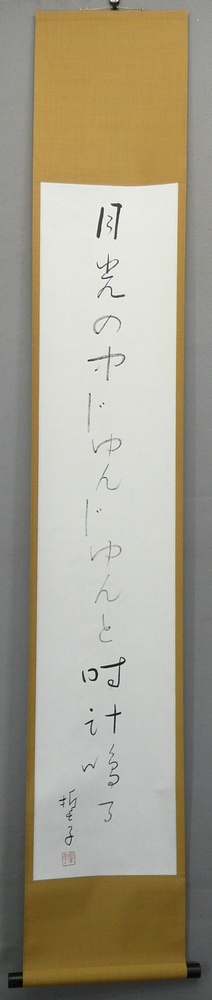 月光の中じゆんじゆんと時計鳴る
哲子